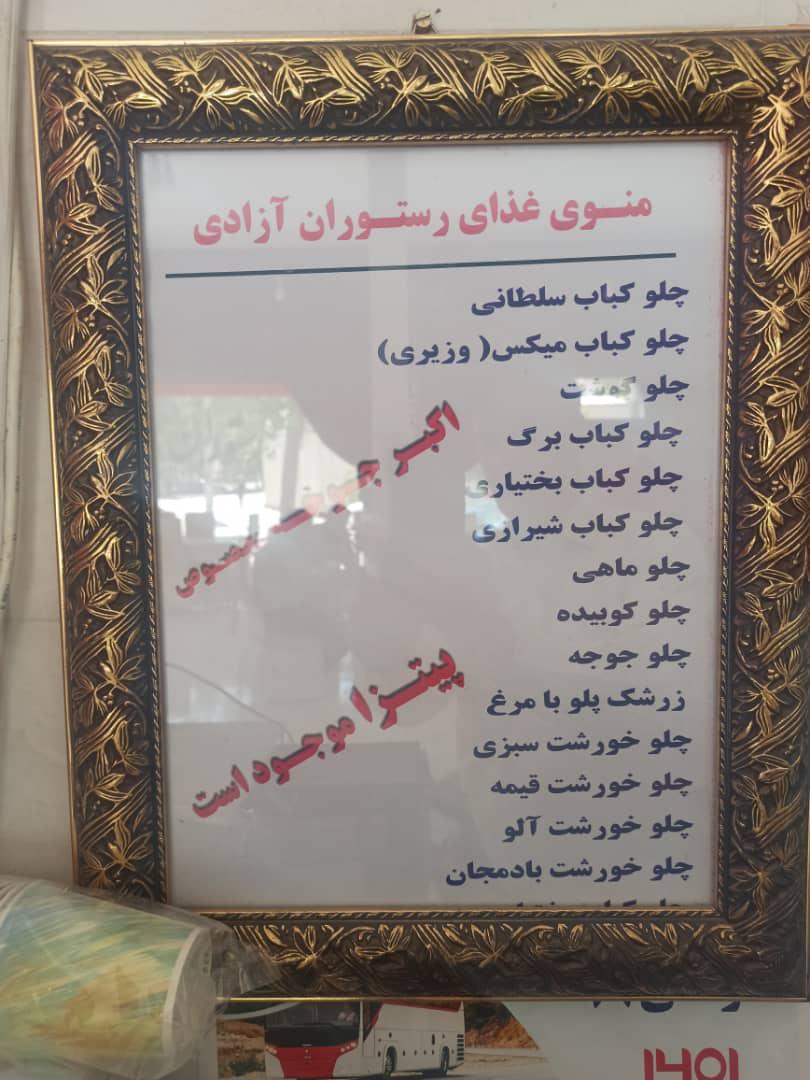 منوی غذای رستوران آزادی
چلو کباب سلطانی
چلو کباب میکس( وزیری)
چلو گوشت
چلو کباب برگ
چلو کباب بختیاری
چلو کباب شیرازی
چلو ماهی
چلو کوبیده
چلو جوجه
زرشک پلو با مرغ
چلو خورشت سبزی
چلو خورشت قیمه
چلو خورشت آلو
چلو خورشت بادمجان
اکبر جوجه مخصوص
پیتزا موجود است
۱۴۰۱